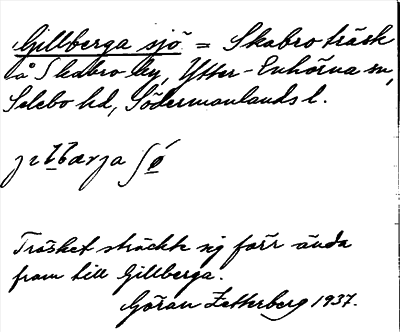 Gillberga sjö = Skabro träsk
på Skabro by, Ytter-Enhörna sn,
Selebo hd, Södermanlands l.
Träsket sträckte sig förr ända
fram till Gillberga.
Göran Zetterberg 1937.